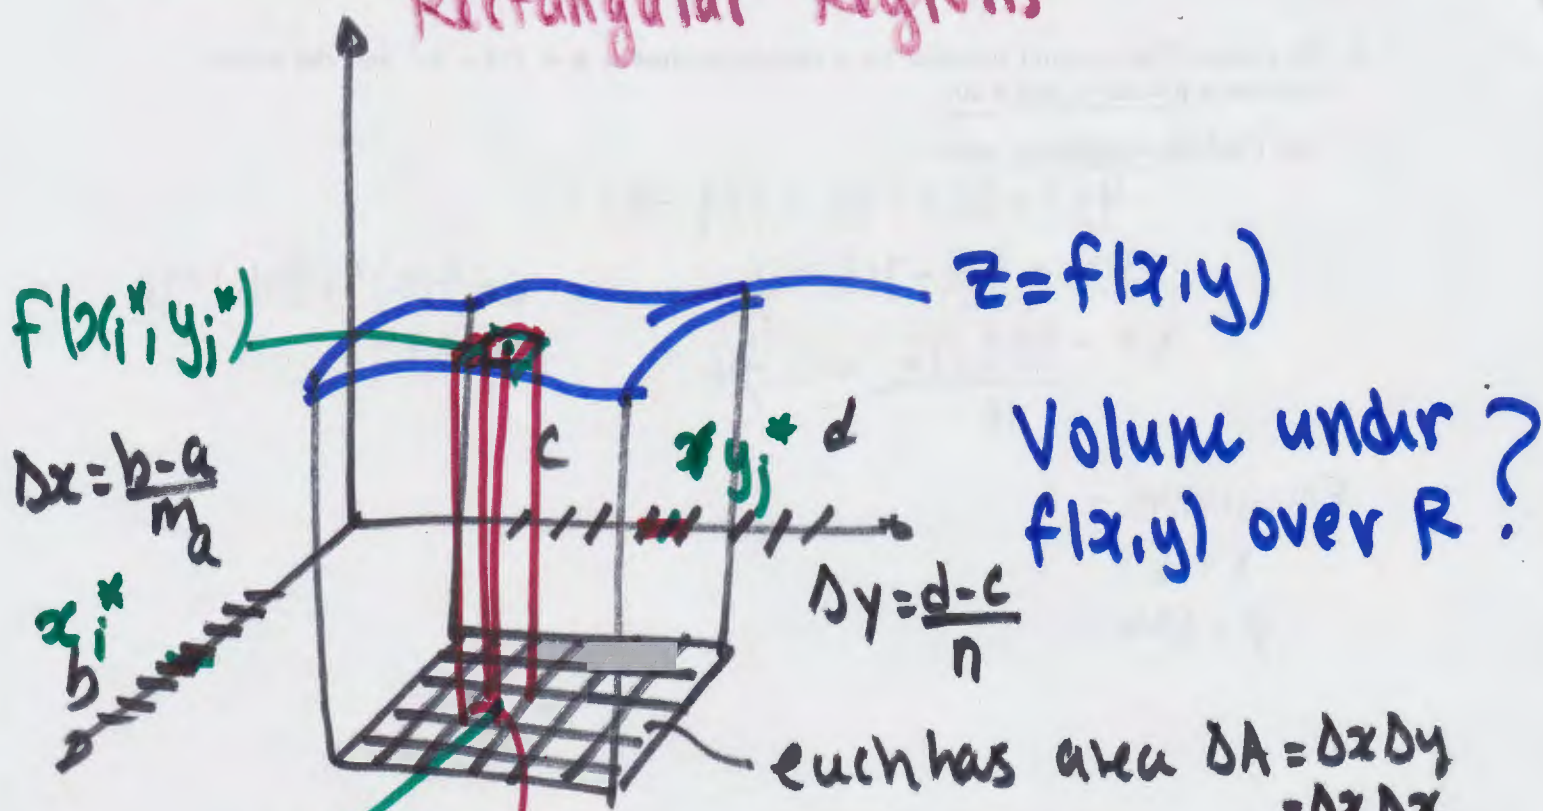 Rectangular Regions
z=f(x,y)
f(xᵢ*, yⱼ*)
Volume under ?
f(x,y) over R
c
yⱼ*
d
Δx = b-a
m
a
xᵢ*
b
Δy = d-c
n
each has area ΔA = ΔxΔy
= ΔxΔx